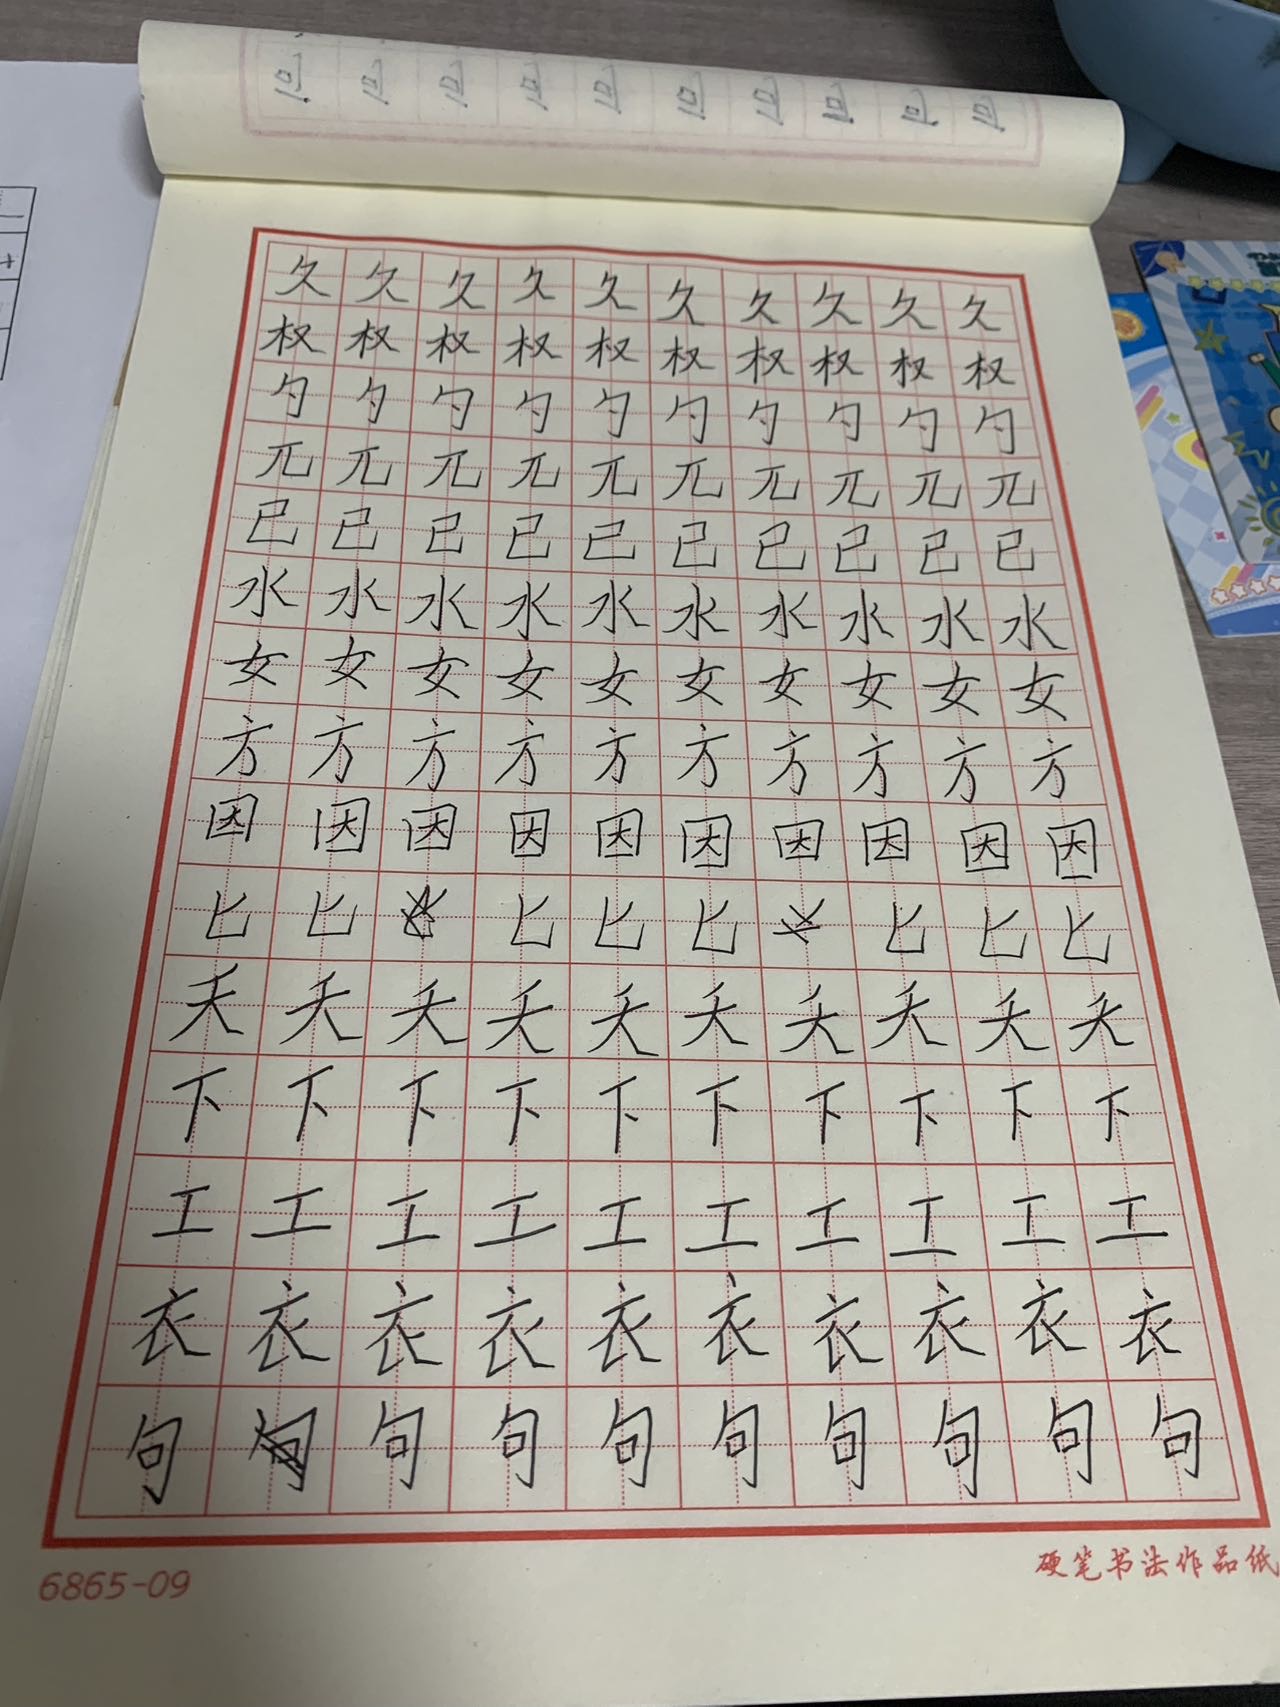 久久久久久久久久久久
权权权权权权权权权权
勺勺勺勺勺勺勺勺勺勺
兀兀兀兀兀兀兀兀兀兀
已已已已已已已已已已
水水水水水水水水水水
女女女女女女女女女女
方方方方方方方方方方
因因因因因因因因因因
匕匕匕匕匕匕匕匕
夭夭夭夭夭夭夭夭夭夭
下下下下下下下下下下
工工工工工工工工工工
衣衣衣衣衣衣衣衣衣衣
句句句句句句句句句
6865-09
硬笔书法作品纸